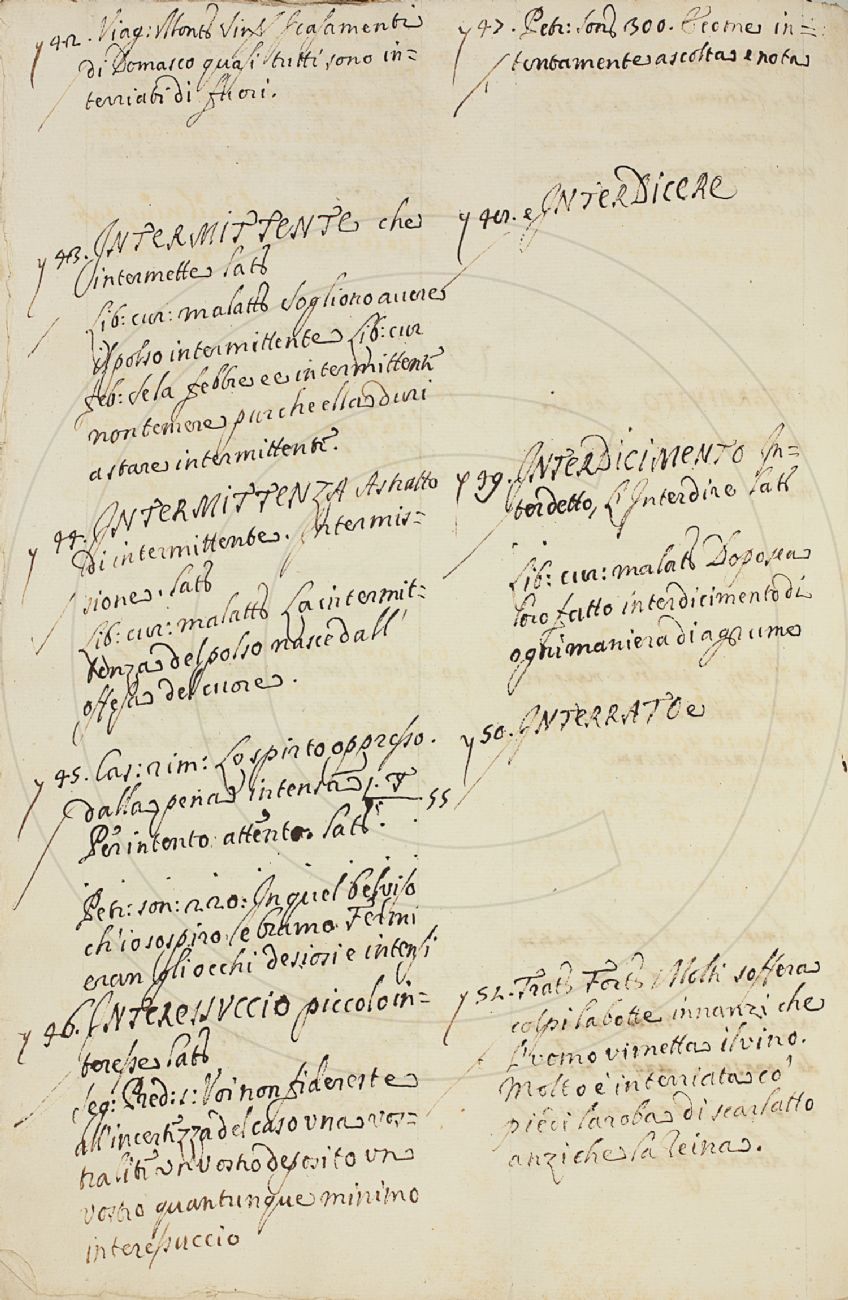 y 42. Viag: Mont: Sin: I casamenti
di Domasco quasi tutti sono in=
terriati di fuori.
y 43. INTERMITTENTE che
intermette Lat:
Lib: cur: malatt: Sogliono avere
il polso intermittente Lib: cur
feb: Se la febbre e e intermittente
non temere pur che ella duri
a stare intermittente.
y 44. INTERMITTENZA Astratto
di intermittente. Intermis=
sione. lat:
Lib: cur: malatt: La intermit=
tenza del polso nasce dall'
offesa del cuore.
y 45. Cas: rim: Lo spirto oppresso.
dalla pena intensa
55
Per intento attento. Lat:
Petr: son: 220: In quel bel viso
ch'io sospiro e bramo Fermi
eran gli occhi desiosi e intensi
y 46. INTERESSUCCIO piccolo in=
teresse Lat:
Seg: Pred: 1: Voi non fidereste
all'incertezza del caso una vos=
tra lite un vostro deposito un
vostro quantunque minimo
interessuccio
y 47. Petr: Son: 300. E come in=
tentamente ascolta e nota
y 48. e INTERDICERE
y 49. INTERDICIMENTO In=
terdetto, L'Interdire Lat:
Lib: cur: malatt: Dopo sea
loro fatto interdicimento di
ogni maniera di agrume
y 50. INTERRATO e
y 51. Tratt: Fort: Molti soffera
colpi la botte innanzi che
l'uomo vi metta il vino.
Molto e interriata co'
piedi la roba di scarlatto
anzi che la Reina.